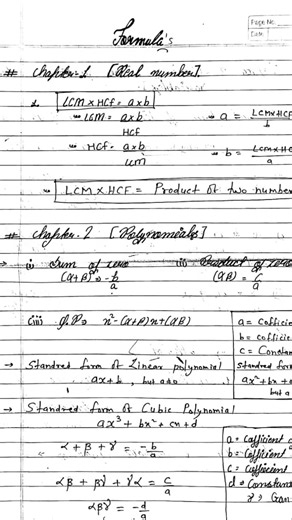 Page No.
Date
Formula's
# Chapter-1 [Real number]
1. LCM × HCF = a×b
LCM = a×b / HCF
a = LCM×HCF / b
HCF = a×b / LCM
b = LCM×HC / a
LCM × HCF = Product of two number
# Chapter-2 [Polynomials]
→ (i) Sum of zero (ii) Product of zero
(α+β) = -b/a (αβ) = c/a
(iii) q.P = x²-(α+β)x+(αβ)
a = cofficie
b = cofficie
c = Constan
Standred for
ax²+bx+c
but a
→ Standred form of Linear polynomial
ax+b, but a≠0
→ Standred form of Cubic Polynomial
ax³ + bx² + cx+d
α + β + γ = -b/a
αβ + βγ + γα = c/a
αβγ = -d/a
a = Cofficient
b = Cofficient
c = Cofficient
d = Constan